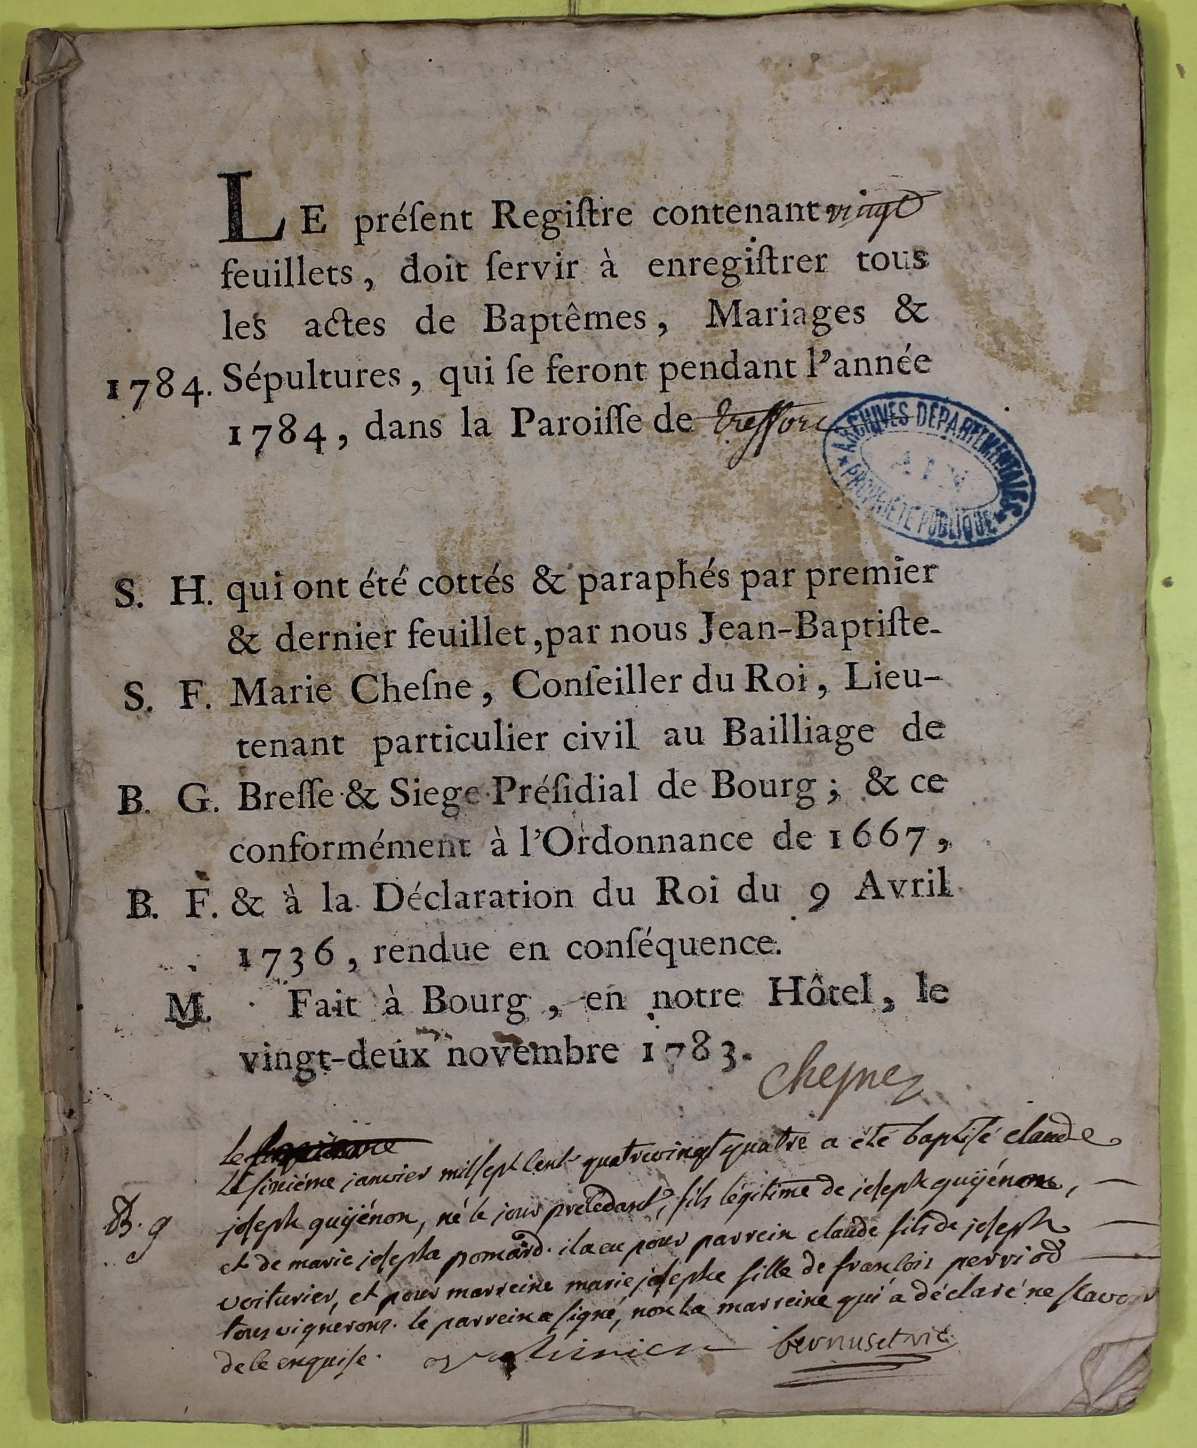 LE préſent Regiſtre contenant vingt
feuillets, doit ſervir à enregiſtrer tous
les actes de Baptêmes, Mariages &
1784. Sépultures, qui ſe feront pendant l'année
1784, dans la Paroiſſe de treffort
ARCHIVES DÉPARTEMENTALES
AIN
PROPRIÉTÉ PUBLIQUE
S. H. qui ont été cottés & paraphés par premier
& dernier feuillet, par nous Jean-Baptiſte-
S. F. Marie Cheſne, Conſeiller du Roi, Lieu-
tenant particulier civil au Bailliage de
B. G. Breſſe & Siege Préſidial de Bourg; & ce
conformément à l'Ordonnance de 1667,
B. F. & à la Déclaration du Roi du 9 Avril
1736, rendue en conſéquence.
M. Fait à Bourg, en notre Hôtel, le
vingt-deux novembre 1783.
cheſne
le
Le sixième janvier mil sept cent quatrevingt quatre a été baptisé claude
B. g joseph guÿénon, né le jour précédant, fils légitime de joseph guÿénon,
et de marie josepha pomard. il a eu pour parrein claude fils de joseph
voiturier, et pour marreine marie josephe fille de françois perriod
tous vignerons. le parrein a signé, non la marreine qui a déclaré ne sçavoir
de ce enquise. bernuset vic.